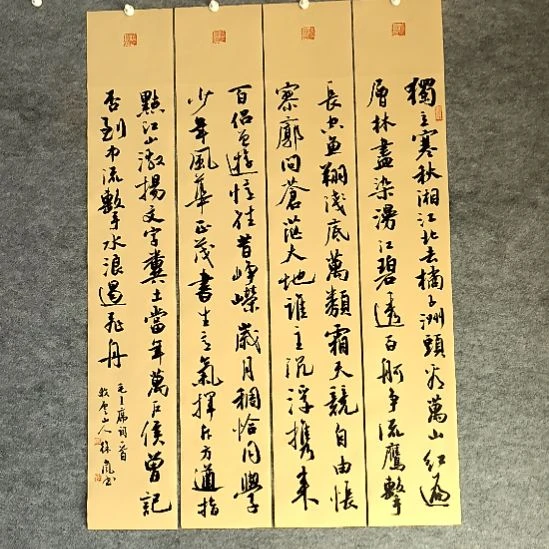 獨立寒秋湘江北去橘子洲頭看萬山紅遍
層林盡染漫江碧透百舸争流鷹擊
長空魚翔淺底萬類霜天競自由悵
寥廓问蒼茫大地谁主沉浮携来
百侣曾遊憶往昔崢嶸歲月稠恰同學
少年風華正茂書生意氣揮斥方遒指
點江山激揚文字糞土當年萬户侯曾記
否到中流擊水浪遏飛舟
毛主席詞一首
山人徐